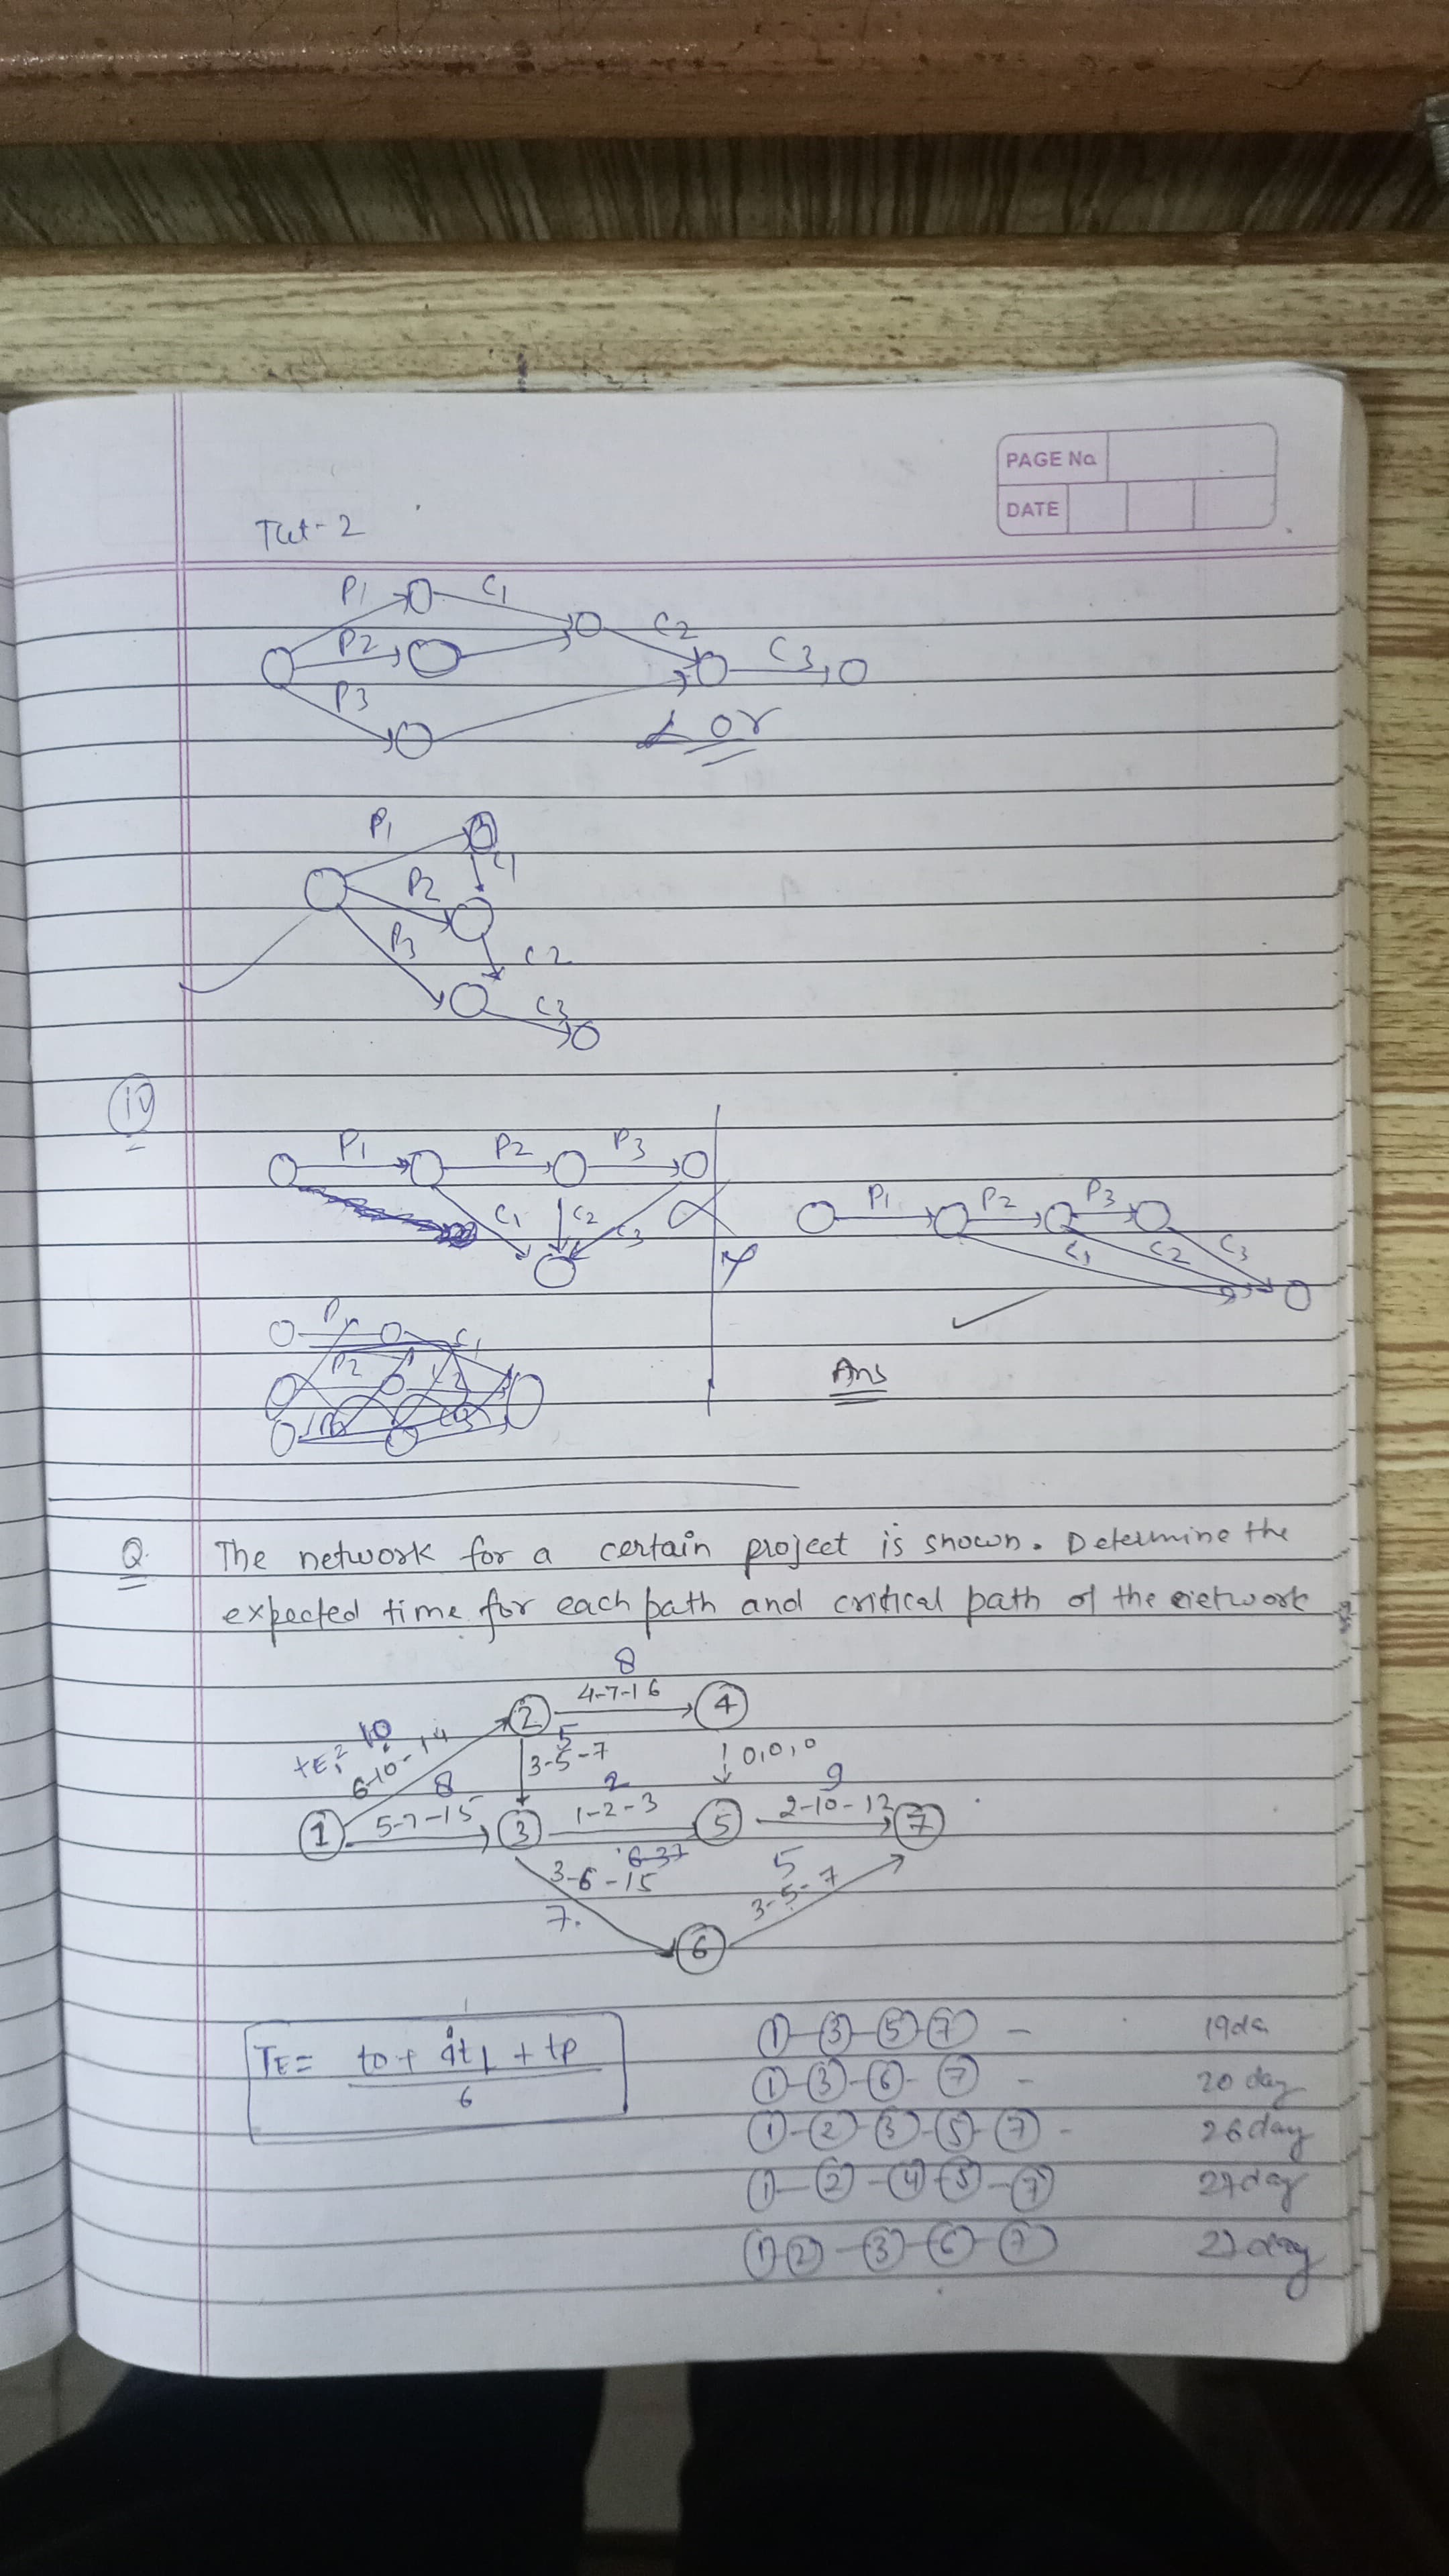 PAGE No
DATE
Tut-2
P1 C1
P2 C2
C3
P3
or
P1
C1
P2
P3 C2
C3
P1 P2 P3
P1 P2 P3
C1 C2 C3
C1 C2 C3
P1 C1
P2
Ans
Q. The network for a certain project is shown. Determine the
expected time for each path and critical path of the network
8
4-7-16
2 4
tE = 10
6-10-14
5
3-5-7
0,0,0
8 2 9
5-7-15 1-2-3 2-10-12
1 3 5 7
3-6-15
5
3-5-7
7.
6
TE = to + 4tL + tp
6
1-3-5-7 - 19da
1-3-6-7 - 20 day
1-2-3-5-7 - 26 day
1-2-4-5-7 27 day
1-2-3-6-7 27 day